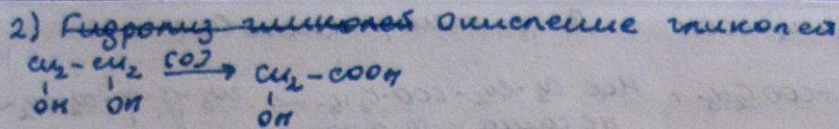 2) Гидролиз гликолей Окисление гликолей
CH2-CH2 [O]→ CH2-COOH
OH OH OH